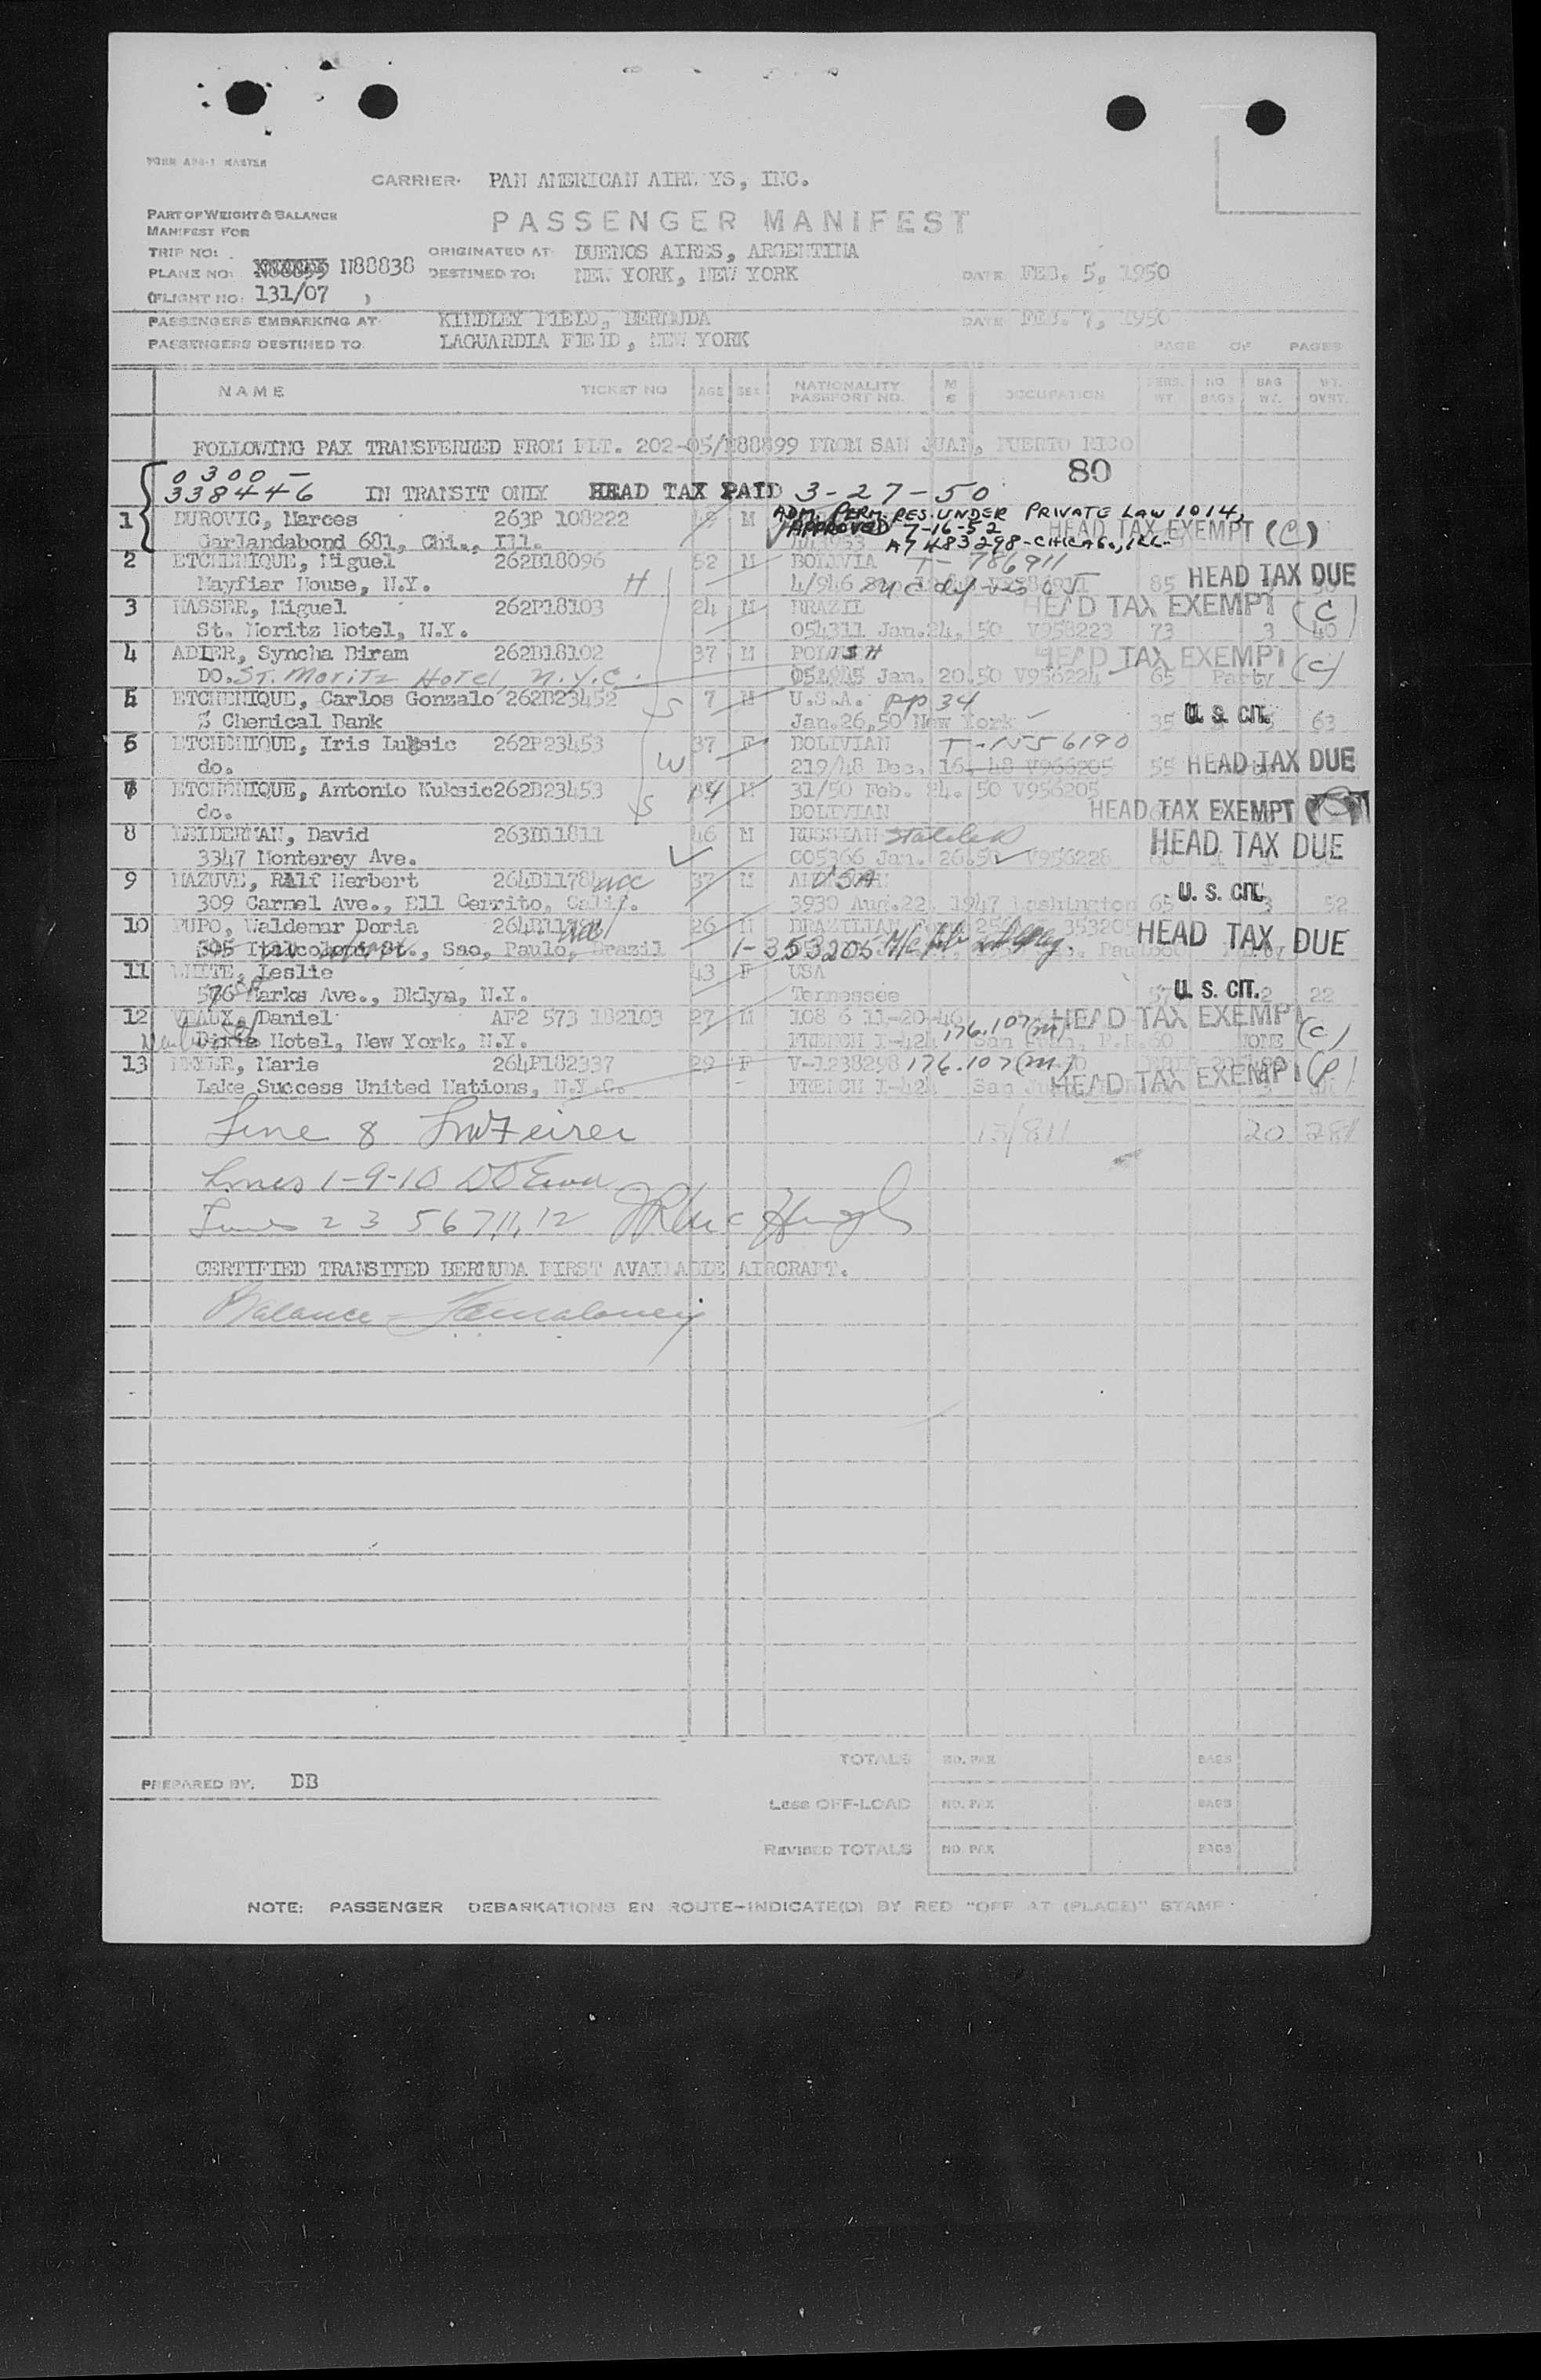 FORM APG-1 MASTER
CARRIER: PAN AMERICAN AIRWYS, INC.
PART OF WEIGHT & BALANCE
MANIFEST FOR
PASSENGER MANIFEST
TRIP NO: ORIGINATED AT: BUENOS AIRES, ARGENTINA
PLANE NO: N88838 DESTINED TO: NEW YORK, NEW YORK DATE FEB. 5, 1950
(FLIGHT NO: 131/07 )
PASSENGERS EMBARKING AT: KINDLEY FIELD, BERMUDA DATE FEB. 7, 1950
PASSENGERS DESTINED TO LAGUARDIA FIELD, NEW YORK
PAGE OF PAGES
NAME TICKET NO AGE SEX NATIONALITY PASSPORT NO. M S OCCUPATION PERS. WT. NO. BAGS BAG WT. WT. OVRT.
FOLLOWING PAX TRANSFERRED FROM FLT. 202-05/N88899 FROM SAN JUAN, PUERTO RICO
0300- 80
338446 IN TRANSIT ONLY HEAD TAX PAID 3-27-50
ADM. PERM. RES. UNDER PRIVATE LAW 1014,
1 DUROVIC, Marces 263P 108222 M APPROVED 7-16-52 HEAD TAX EXEMPT (C)
Garlandabond 681, Chi., Ill. A7483298-CHICAGO, ILL.
2 ETCHENIQUE, Miguel 262B18096 52 M BOLIVIA T-786911
Mayfiar House, N.Y. H 4/946 85 HEAD TAX DUE
3 NASSER, Miguel 262P18103 24 M BRAZIL HEAD TAX EXEMPT (C)
St. Moritz Hotel, N.Y. 054311 Jan.24, 50 V958223 73 3 40
4 ADLER, Syncha Biram 262B18102 37 M POLISH HEAD TAX EXEMPT (C)
DO. St. Moritz Hotel, N.Y.C. Jan. 20.50 V956224 65 Party
5 ETCHENIQUE, Carlos Gonzalo 262B23452 S 7 M U.S.A. PP 34
% Chemical Bank Jan.26,50 New York 35 U. S. CIT. 63
6 ETCHENIQUE, Iris Luksic 262P23453 37 F BOLIVIAN T-1556190
do. W 219/48 Dec. 16. 48 V966205 55 HEAD TAX DUE
7 ETCHENIQUE, Antonio Kuksic 262B23453 S 14 M 31/50 Feb. 24. 50 V956205
do. BOLIVIAN HEAD TAX EXEMPT
8 LEIDERMAN, David 263B11811 46 M RUSSIAN Stateless
3347 Monterey Ave. 005366 Jan. 26.50 V956228 HEAD TAX DUE
9 MAZUVE, Ralf Herbert 264B1178 37 M USA
309 Carmel Ave., Ell Cerrito, Calif. 3930 Aug.22, 1947 Washington 65 U. S. CIT. 3 52
10 PUPO, Waldemar Doria 26 M BRAZILIAN 353205
305 St., Sao, Paulo, Brazil 1-353205 HEAD TAX DUE
11 WHITE, Leslie 43 F USA
576 Marks Ave., Bklyn, N.Y. Tennessee 57 U. S. CIT. 2 22
12 VEAUX, Daniel AF2 573 182103 27 M 108 6 11-20-46 HEAD TAX EXEMPT
Dixie Hotel, New York, N.Y. FRENCH I-424 176.107(m) San Juan, P.R. 60 NONE (C)
13 MEYER, Marie 264P182337 29 F V-1238298 176.107(m)
Lake Success United Nations, N.Y.C. FRENCH I-424 San HEAD TAX EXEMPT (P)
Line 8
13/811 20 281
Lines 1-9-10
Lines 2 3 5 6 7, 11, 12
CERTIFIED TRANSITED BERMUDA FIRST AVAILABLE AIRCRAFT.
Balance -
TOTALS NO. PAX BAGS
PREPARED BY: DB
Less OFF-LOAD NO. PAX BAGS
REVISED TOTALS NO. PAX BAGS
NOTE: PASSENGER DEBARKATIONS EN ROUTE-INDICATE(D) BY RED "OFF AT (PLACE)" STAMP